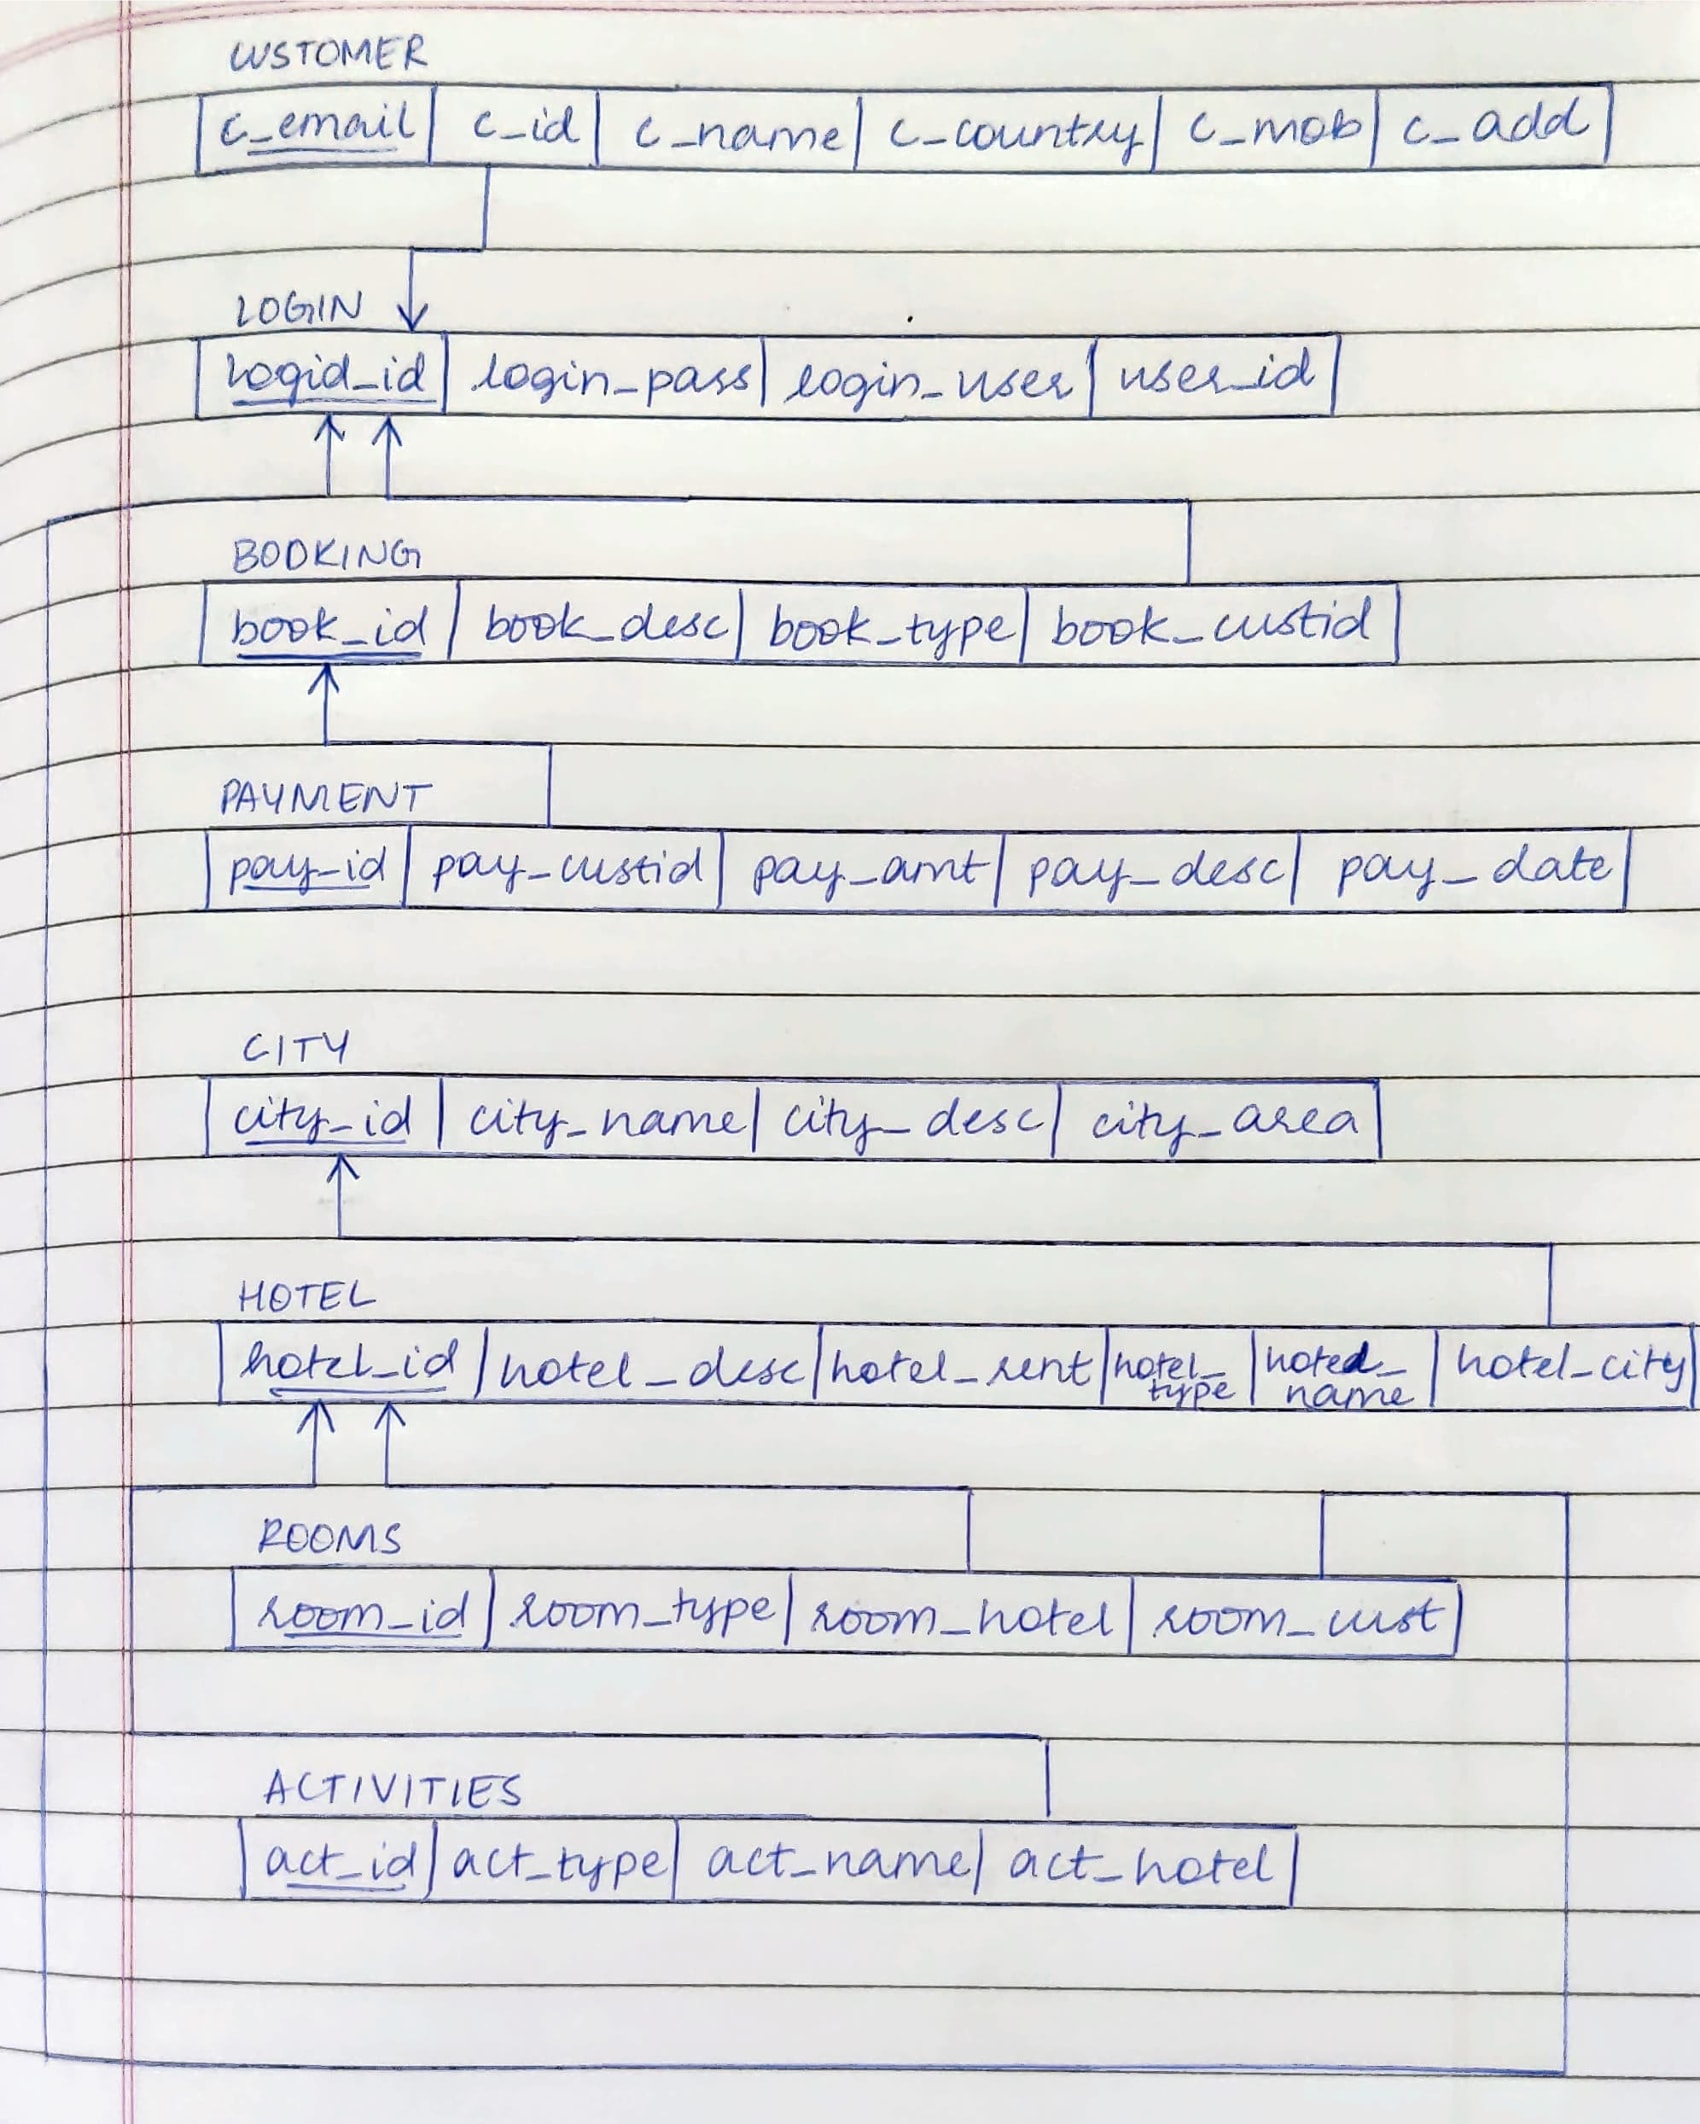 CUSTOMER
c_email c_id c_name c_country c_mob c_add
LOGIN
logid_id login_pass login_user user_id
BOOKING
book_id book_desc book_type book_custid
PAYMENT
pay_id pay_custid pay_amt pay_desc pay_date
CITY
city_id city_name city_desc city_area
HOTEL
hotel_id hotel_desc hotel_rent hotel_type hotel_name hotel_city
ROOMS
room_id room_type room_hotel room_cust
ACTIVITIES
act_id act_type act_name act_hotel